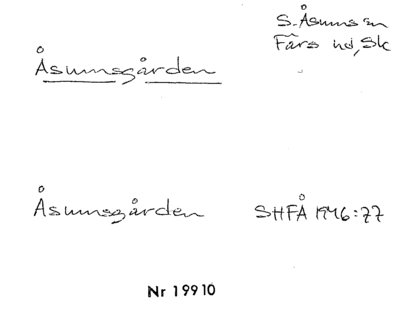 S. Åsums sn
Färs hd, Sk
Åsumsgården
Åsumsgården SHFÅ 1946:77
Nr 19910